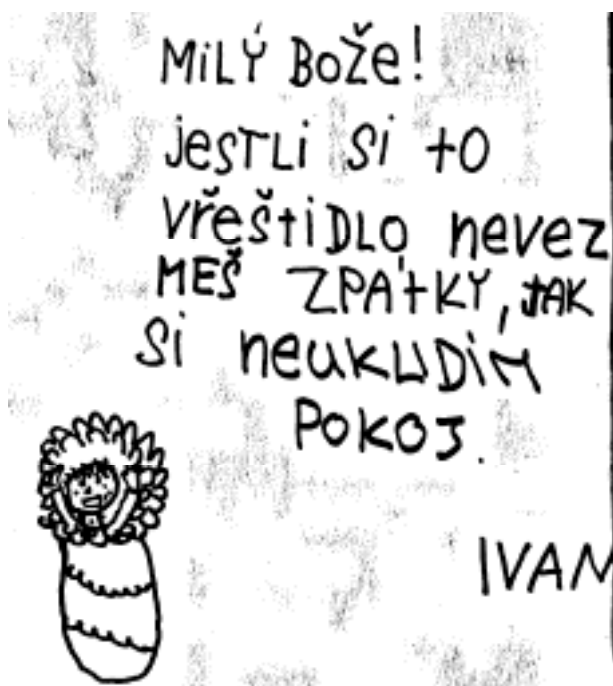 MiLÝ BoŽe!
jesTLi Si to
VřeštiDLO neVez
MEŠ ZPÁtKY, JAK
Si neUKLIDÍM
POKOJ.
IVAN